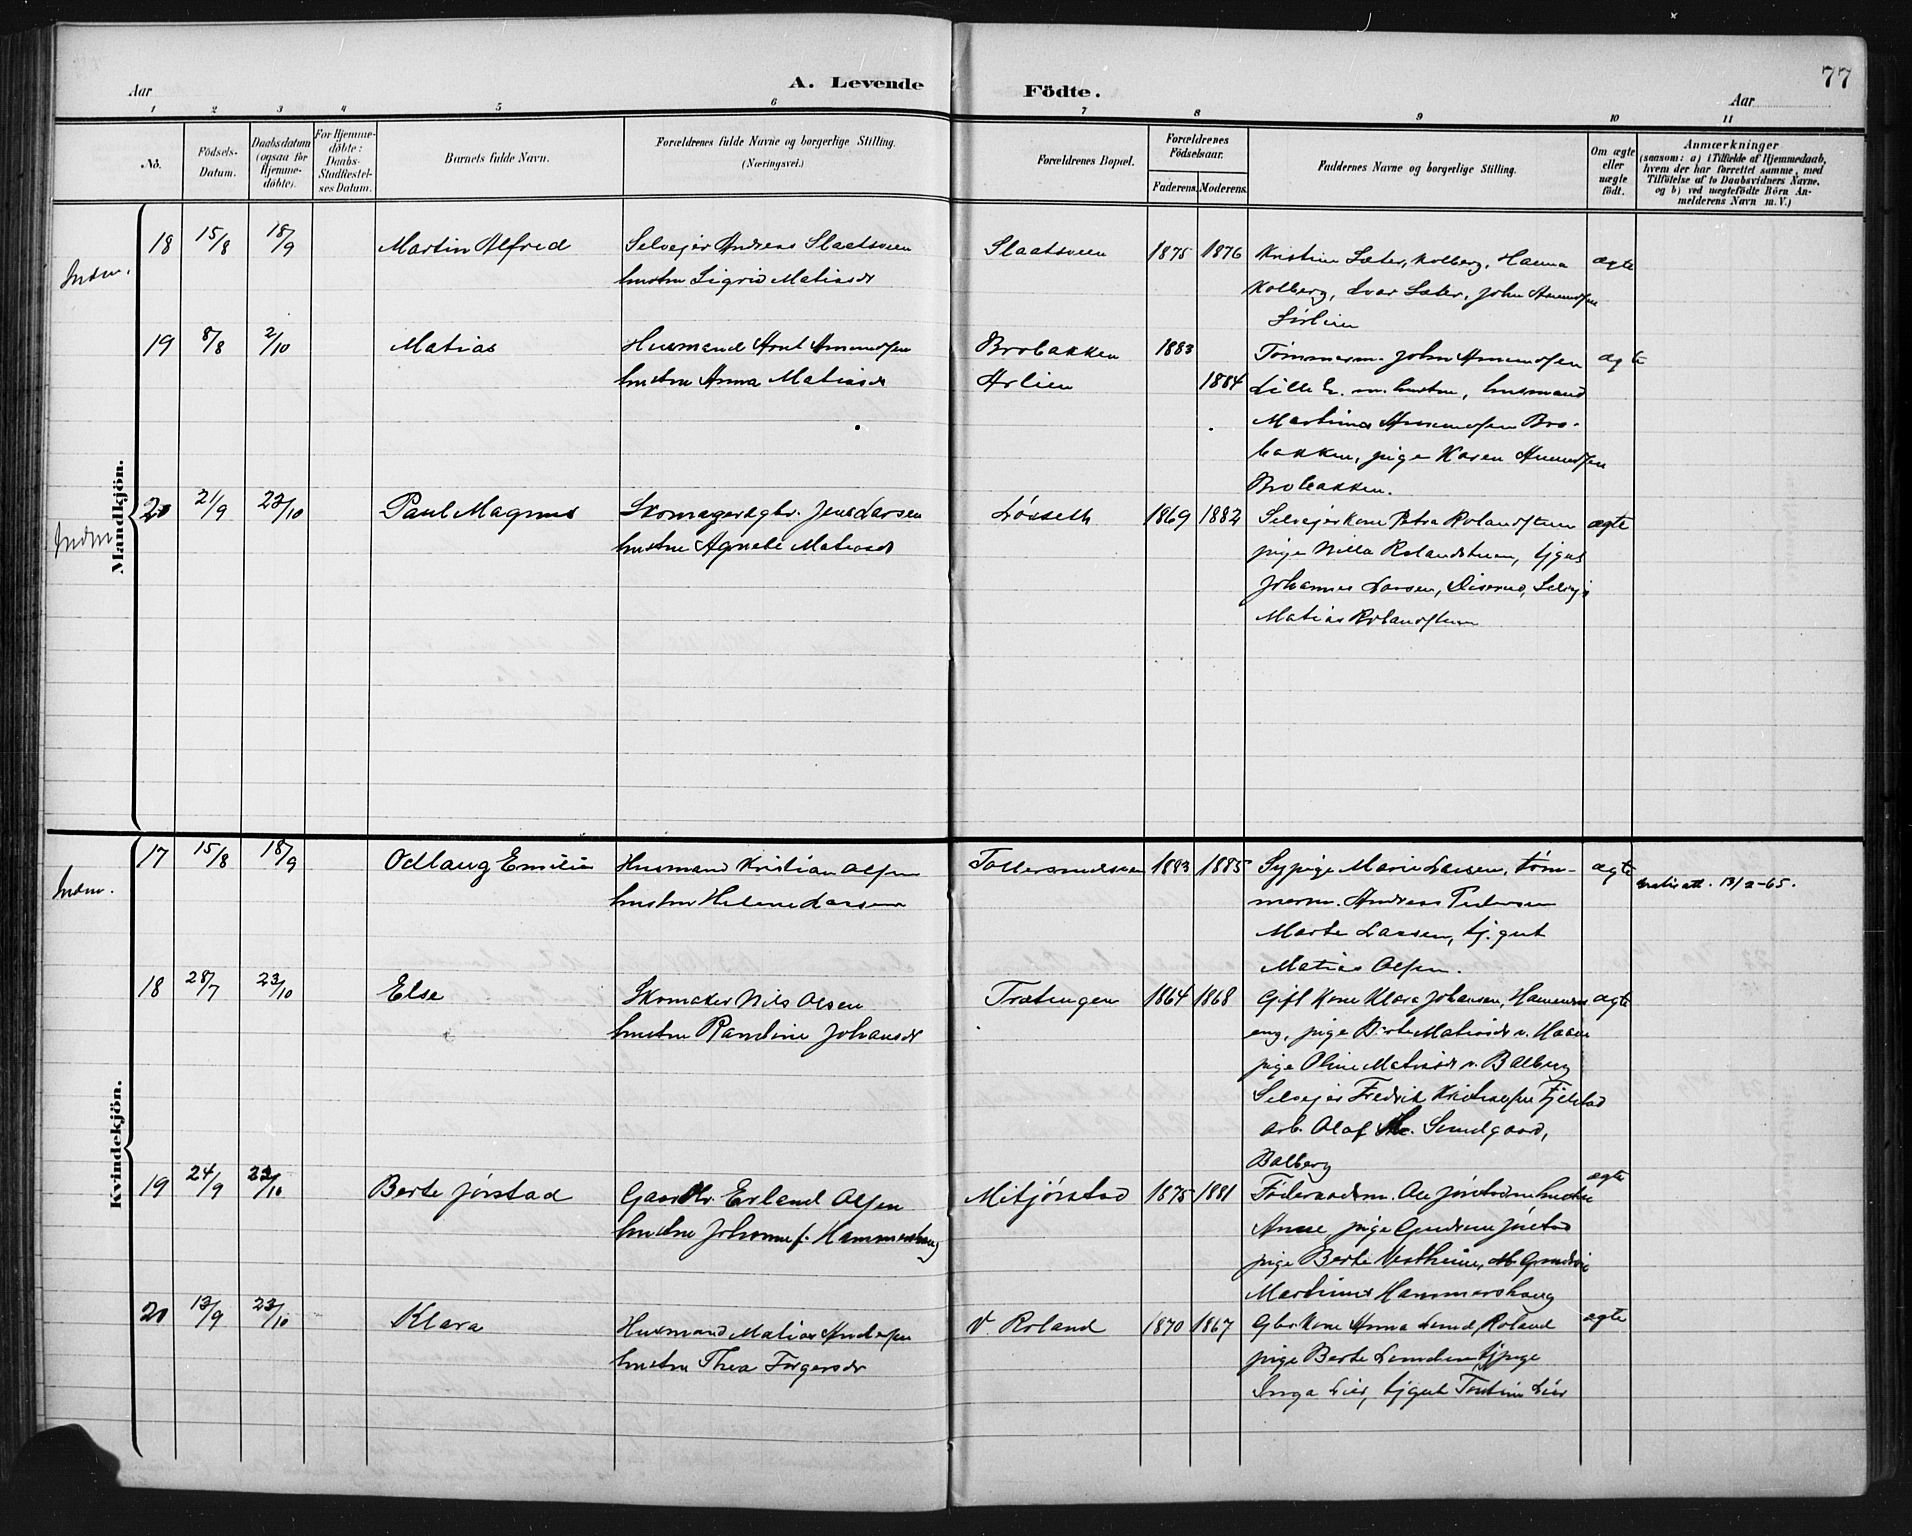 77
A. Levende Födte.
Aar
Aar
1 2 3 4 5 6 7 8 9 10 11
No.
Födsels-Datum.
Daabsdatum (ogsaa for Hjemme-döbte).
For Hjemme-döbte: Daabs-Stadfæstel-ses Datum.
Barnets fulde Navn.
Forældrenes fulde Navne og borgerlige Stilling.
(Næringsvei.)
Forældrenes Bopæl.
Forældrenes Födselsaar.
Faderens. Moderens.
Faddernes Navne og borgerlige Stilling.
Om ægte eller uægte födt.
Anmærkninger
(saasom: a) i Tilfælde af Hjemmedaab, hvem der har forrettet samme, med Tilföielse af to Daabsvidners Navne, og b) ved uægtefödte Börn An-melderens Navn m. V.)
Mandkjön.
18 15/8 18/9 Martin Alfred Selveier Andreas Slaatsveen Slaatsveen 1875 1876 Kristine Sæter, Kolberg, Hanna ægte
Indm.
hustru Sigrid Matiasdr Kolberg, Ivar Sæter, John Amundsen
Sörlien
19 8/8 2/10 Matias Husmand Arnt Amundsen Brobakken 1883 Tömmerm. John Amundsen ægte
hustru Anna Matiasdr Arlien 1884 Lille E. m. hustru, husmand
Martinus Amundsen Bro-
bakken, pige Karen Amundsen
Brobakken.
20 21/9 23/10 Paul Magnus Skomager Jens Larsen Lösseth 1869 1882 Selveierkone Petra Rolandstuen ægte
Indm
hustru Agnete Matiasdr pige Milla Rolandstuen, tjgut
Johannes Larsen, Diserud, Selvej
Matias Rolandstuen
Kvindekjön.
17 15/8 18/9 Odlaug Emilie Husmand Kristian Olsen 1883 1885 Sypige Marie Larsen, töm- ægte
Indm.
hustru Helene Larsen merm. Andreas Pedersen
attt. 13/2-65.
Marte Larsen, tj.gut
Matias Olsen.
18 28/7 23/10 Else Skomaker Nils Olsen Trætengen 1864 1868 Gift Kone Klara Johansen, ægte
hustru Randine Johansdr eng, pige Berte Matiasdr v. Haave
pige Oline Matiasdr v. Balberg
Selveier Fredrik Kristiansen Fjelstad
arb. Olaf Sundgaard,
Balberg
19 24/9 23/10 Berte Jörstad Gaardbr. Erland Olsen Mitjörstad 1875 1881 Föderaadsm. Ole Jörstad m hustru ægte
hustru Johanne f. Hammershaug Anne, pige Gudrun Jörstad
pige Berte Vestheim,
Martinus Hammershaug
20 13/9 23/10 Klara Husmand Matias Andersen V. Roland 1870 1867 Gbr Kone Anna Lund, Roland ægte
hustru Thea Torgersdr pige Berte Lunden tjpige
Inga Lier, tjgut Torstein Lier